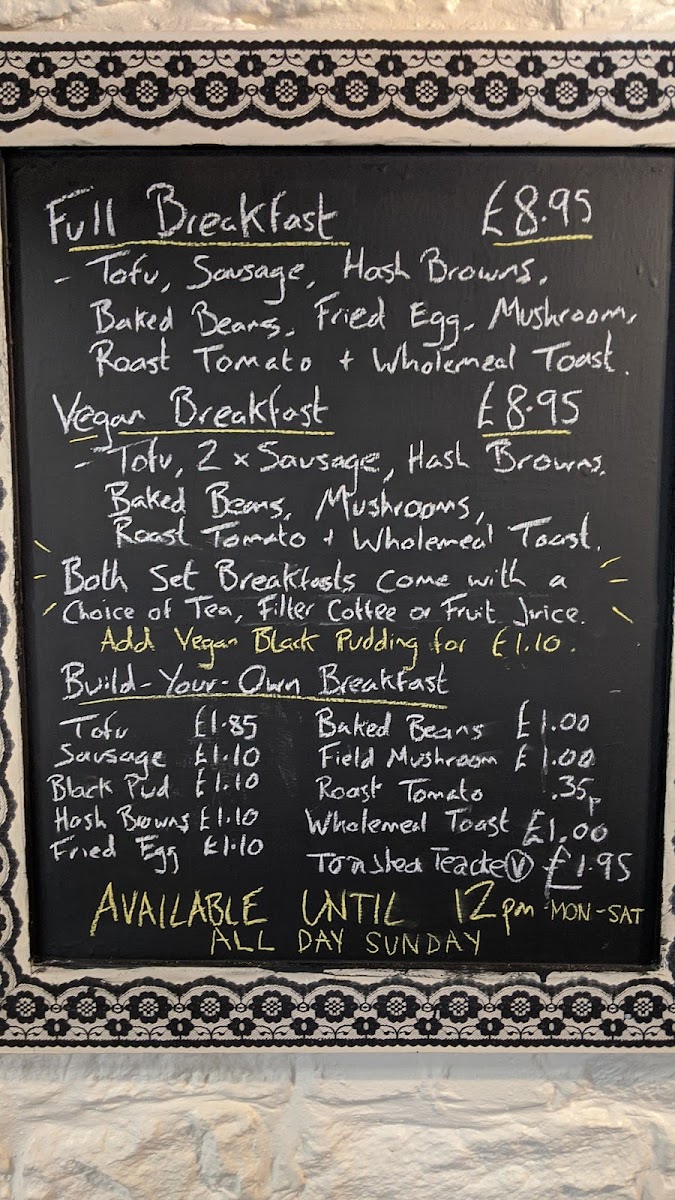 Full Breakfast £8.95
- Tofu, Sausage, Hash Browns,
Baked Beans, Fried Egg, Mushroom,
Roast Tomato + Wholemeal Toast.
Vegan Breakfast £8.95
- Tofu, 2 x Sausage, Hash Browns,
Baked Beans, Mushrooms,
Roast Tomato + Wholemeal Toast.
Both Set Breakfasts come with a
Choice of Tea, Filter Coffee or Fruit Juice.
Add Vegan Black Pudding for £1.10.
Build-Your-Own Breakfast
Tofu £1.85 Baked Beans £1.00
Sausage £1.10 Field Mushroom £1.00
Black Pud £1.10 Roast Tomato .35p
Hash Browns £1.10 Wholemeal Toast £1.00
Fried Egg £1.10 Toasted Teacke Ⓥ £1.95
AVAILABLE UNTIL 12pm MON-SAT
ALL DAY SUNDAY